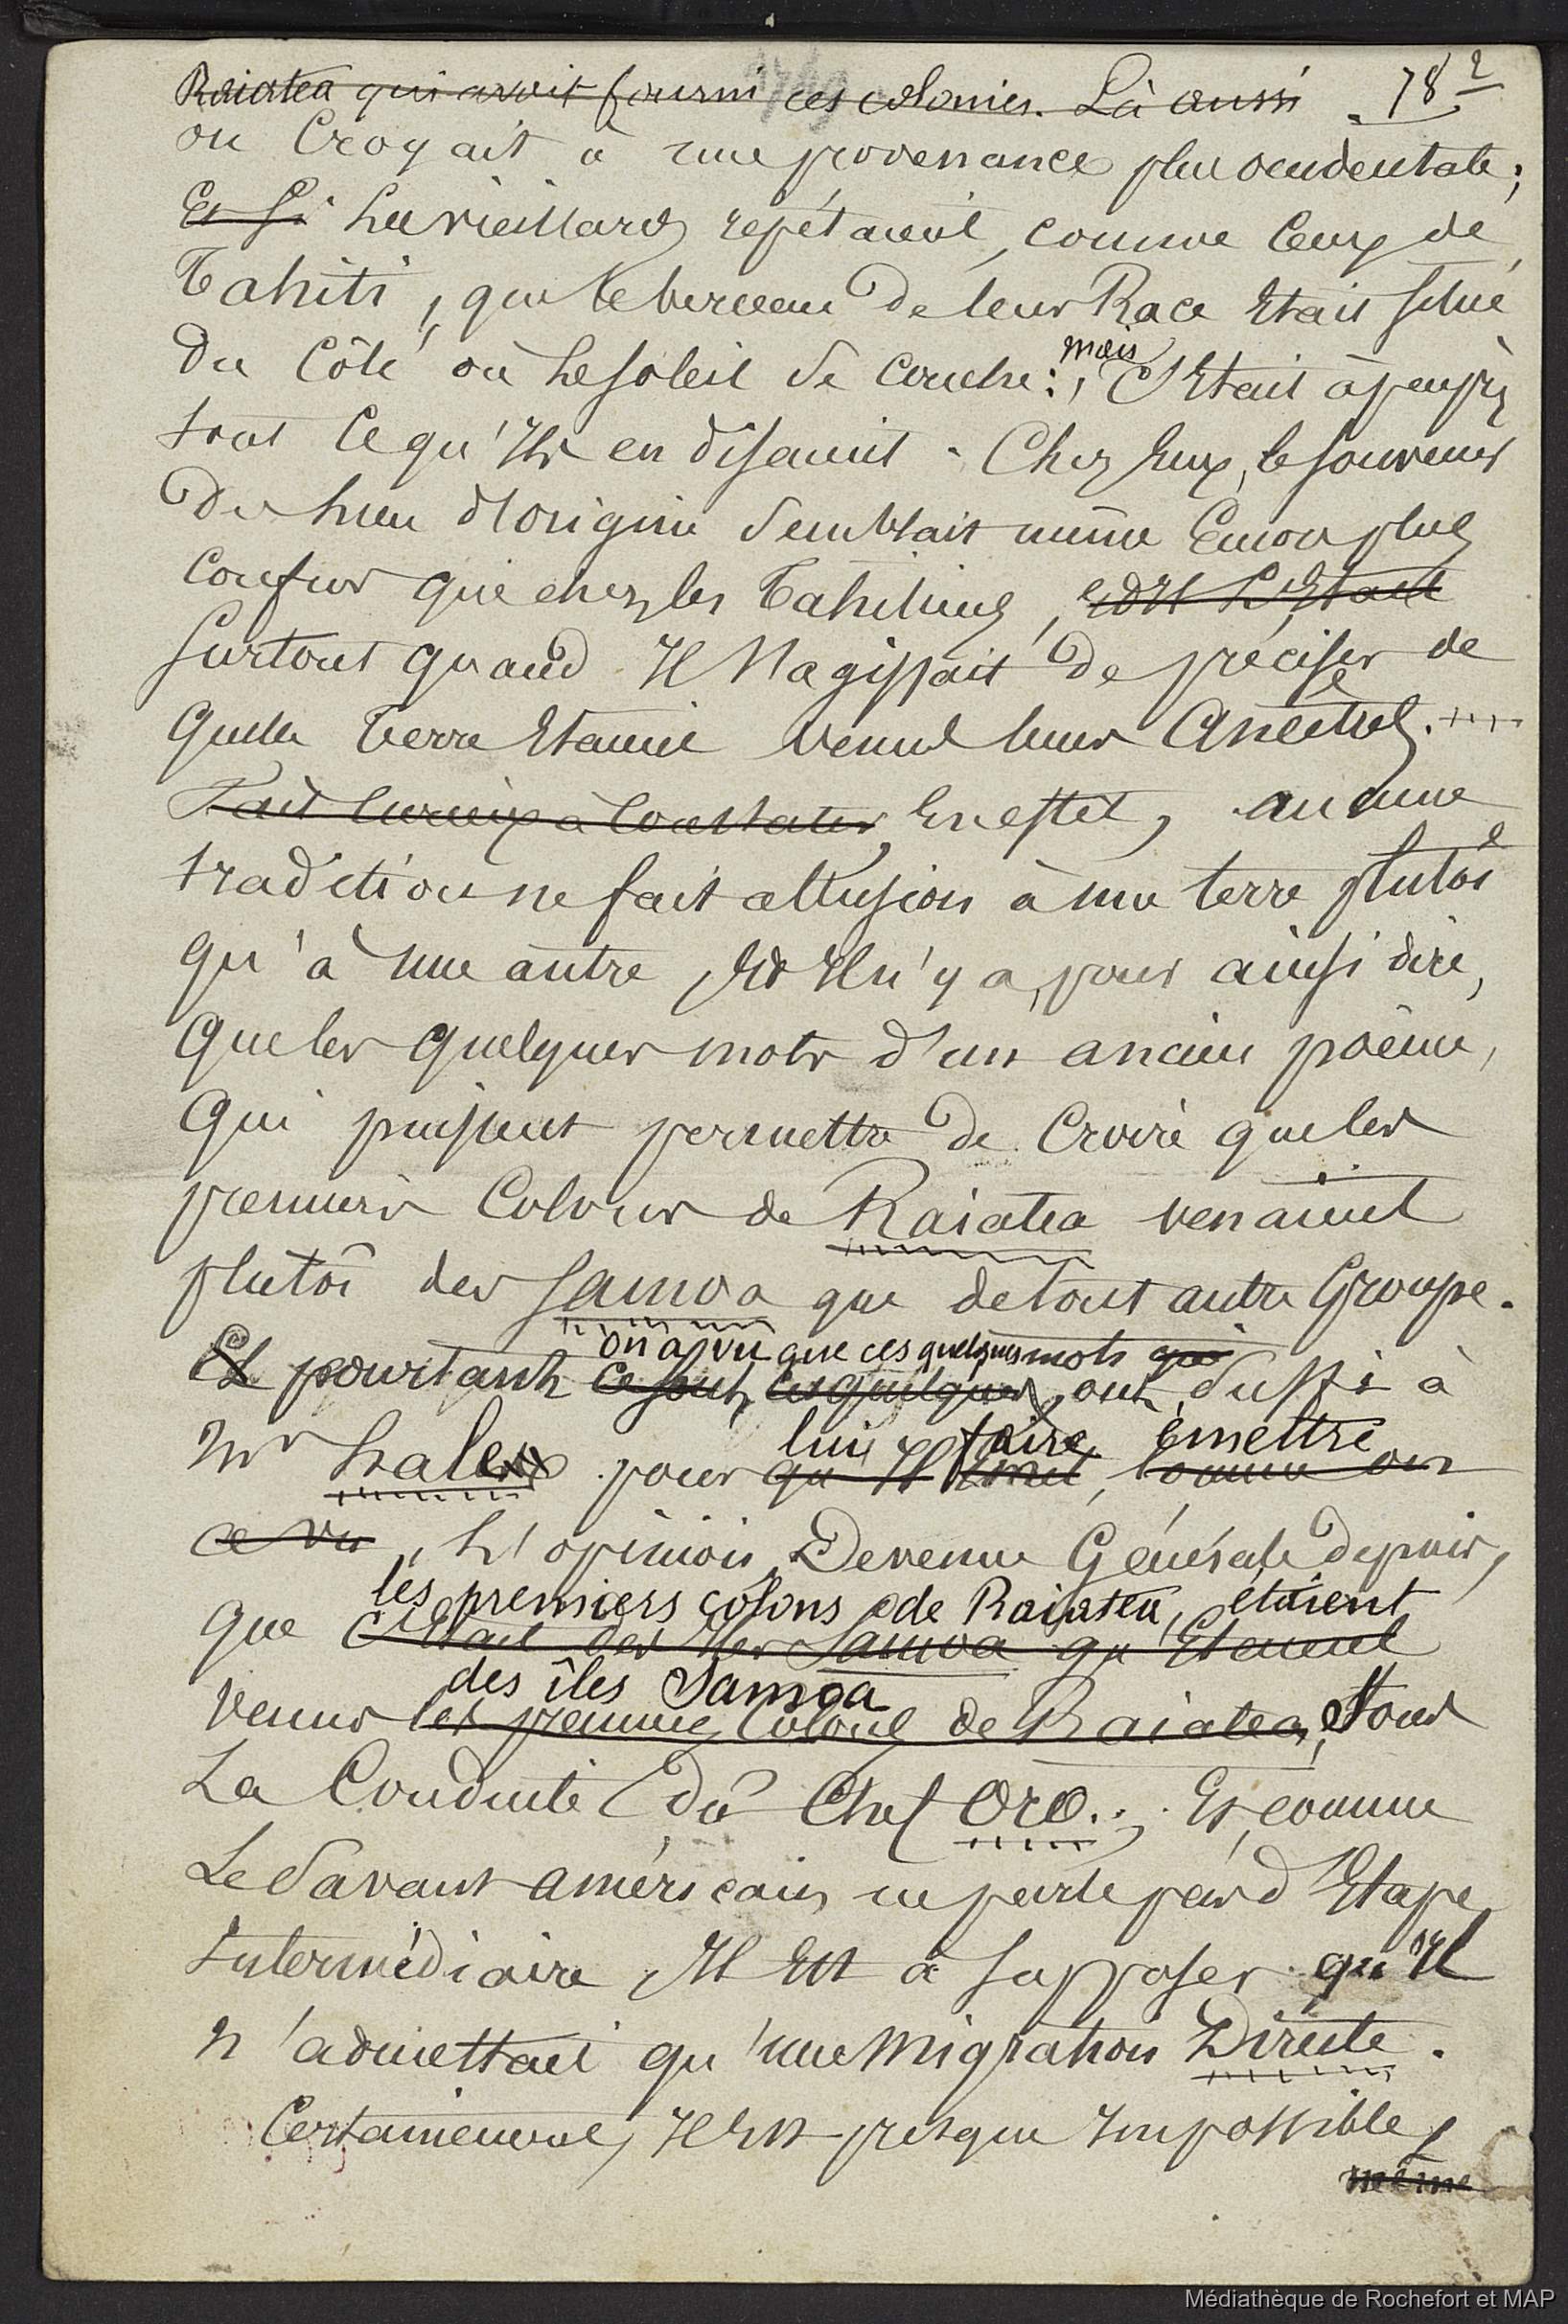 Raiatea qui avait fourni ces colonies. Là aussi 78 2
on croyait à une provenance plus occidentale;
Et si les vieillards repétaient, comme ceux de
Tahiti, que le berceau de leur Race était situé
du côté où le soleil se couche: mais
c'était à peu près
tout ce qu'ils en disaient. Chez eux, le souvenir
du lieu d'origine semblait même encore plus
confus que chez les Tahitiens, et il l'était
surtout quand il s'agissait de préciser de
quelle terre étaient venus leurs ancêtres.
Fait curieux à constater, en effet, aucune
tradition ne fait allusion à une terre plutôt
qu'à une autre et il n'y a, pour ainsi dire,
que les quelques mots d'un ancien poème,
qui puissent permettre de croire que les
premiers colons de Raiatea venaient
plutôt des Samoa que de tout autre Groupe.
on a vu que ces quelques mots qui
Et pourtant ce sont ces quelques, ont suffi à
lui faire émettre
Mr hale pour qu'il émet, comme on
a vu, l'opinion, devenue Générale depuis,
les premiers colons de Raiatea, étaient
que c'était des îles Samoa qu'étaient
des îles Samoa
venus les premiers colons de Raiatea, sous
la conduite du chef Oro.; Et comme
le savant américain ne parle pas d'étape
intermédiaire, il est à supposer qu'il
n'admettait qu'une migration Directe.
Certainement, il est presque impossible,
même
Médiathèque de Rochefort et MAP